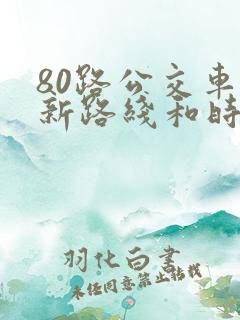 80路公交车
新路线和时
羽化白书
未经同意禁止转载